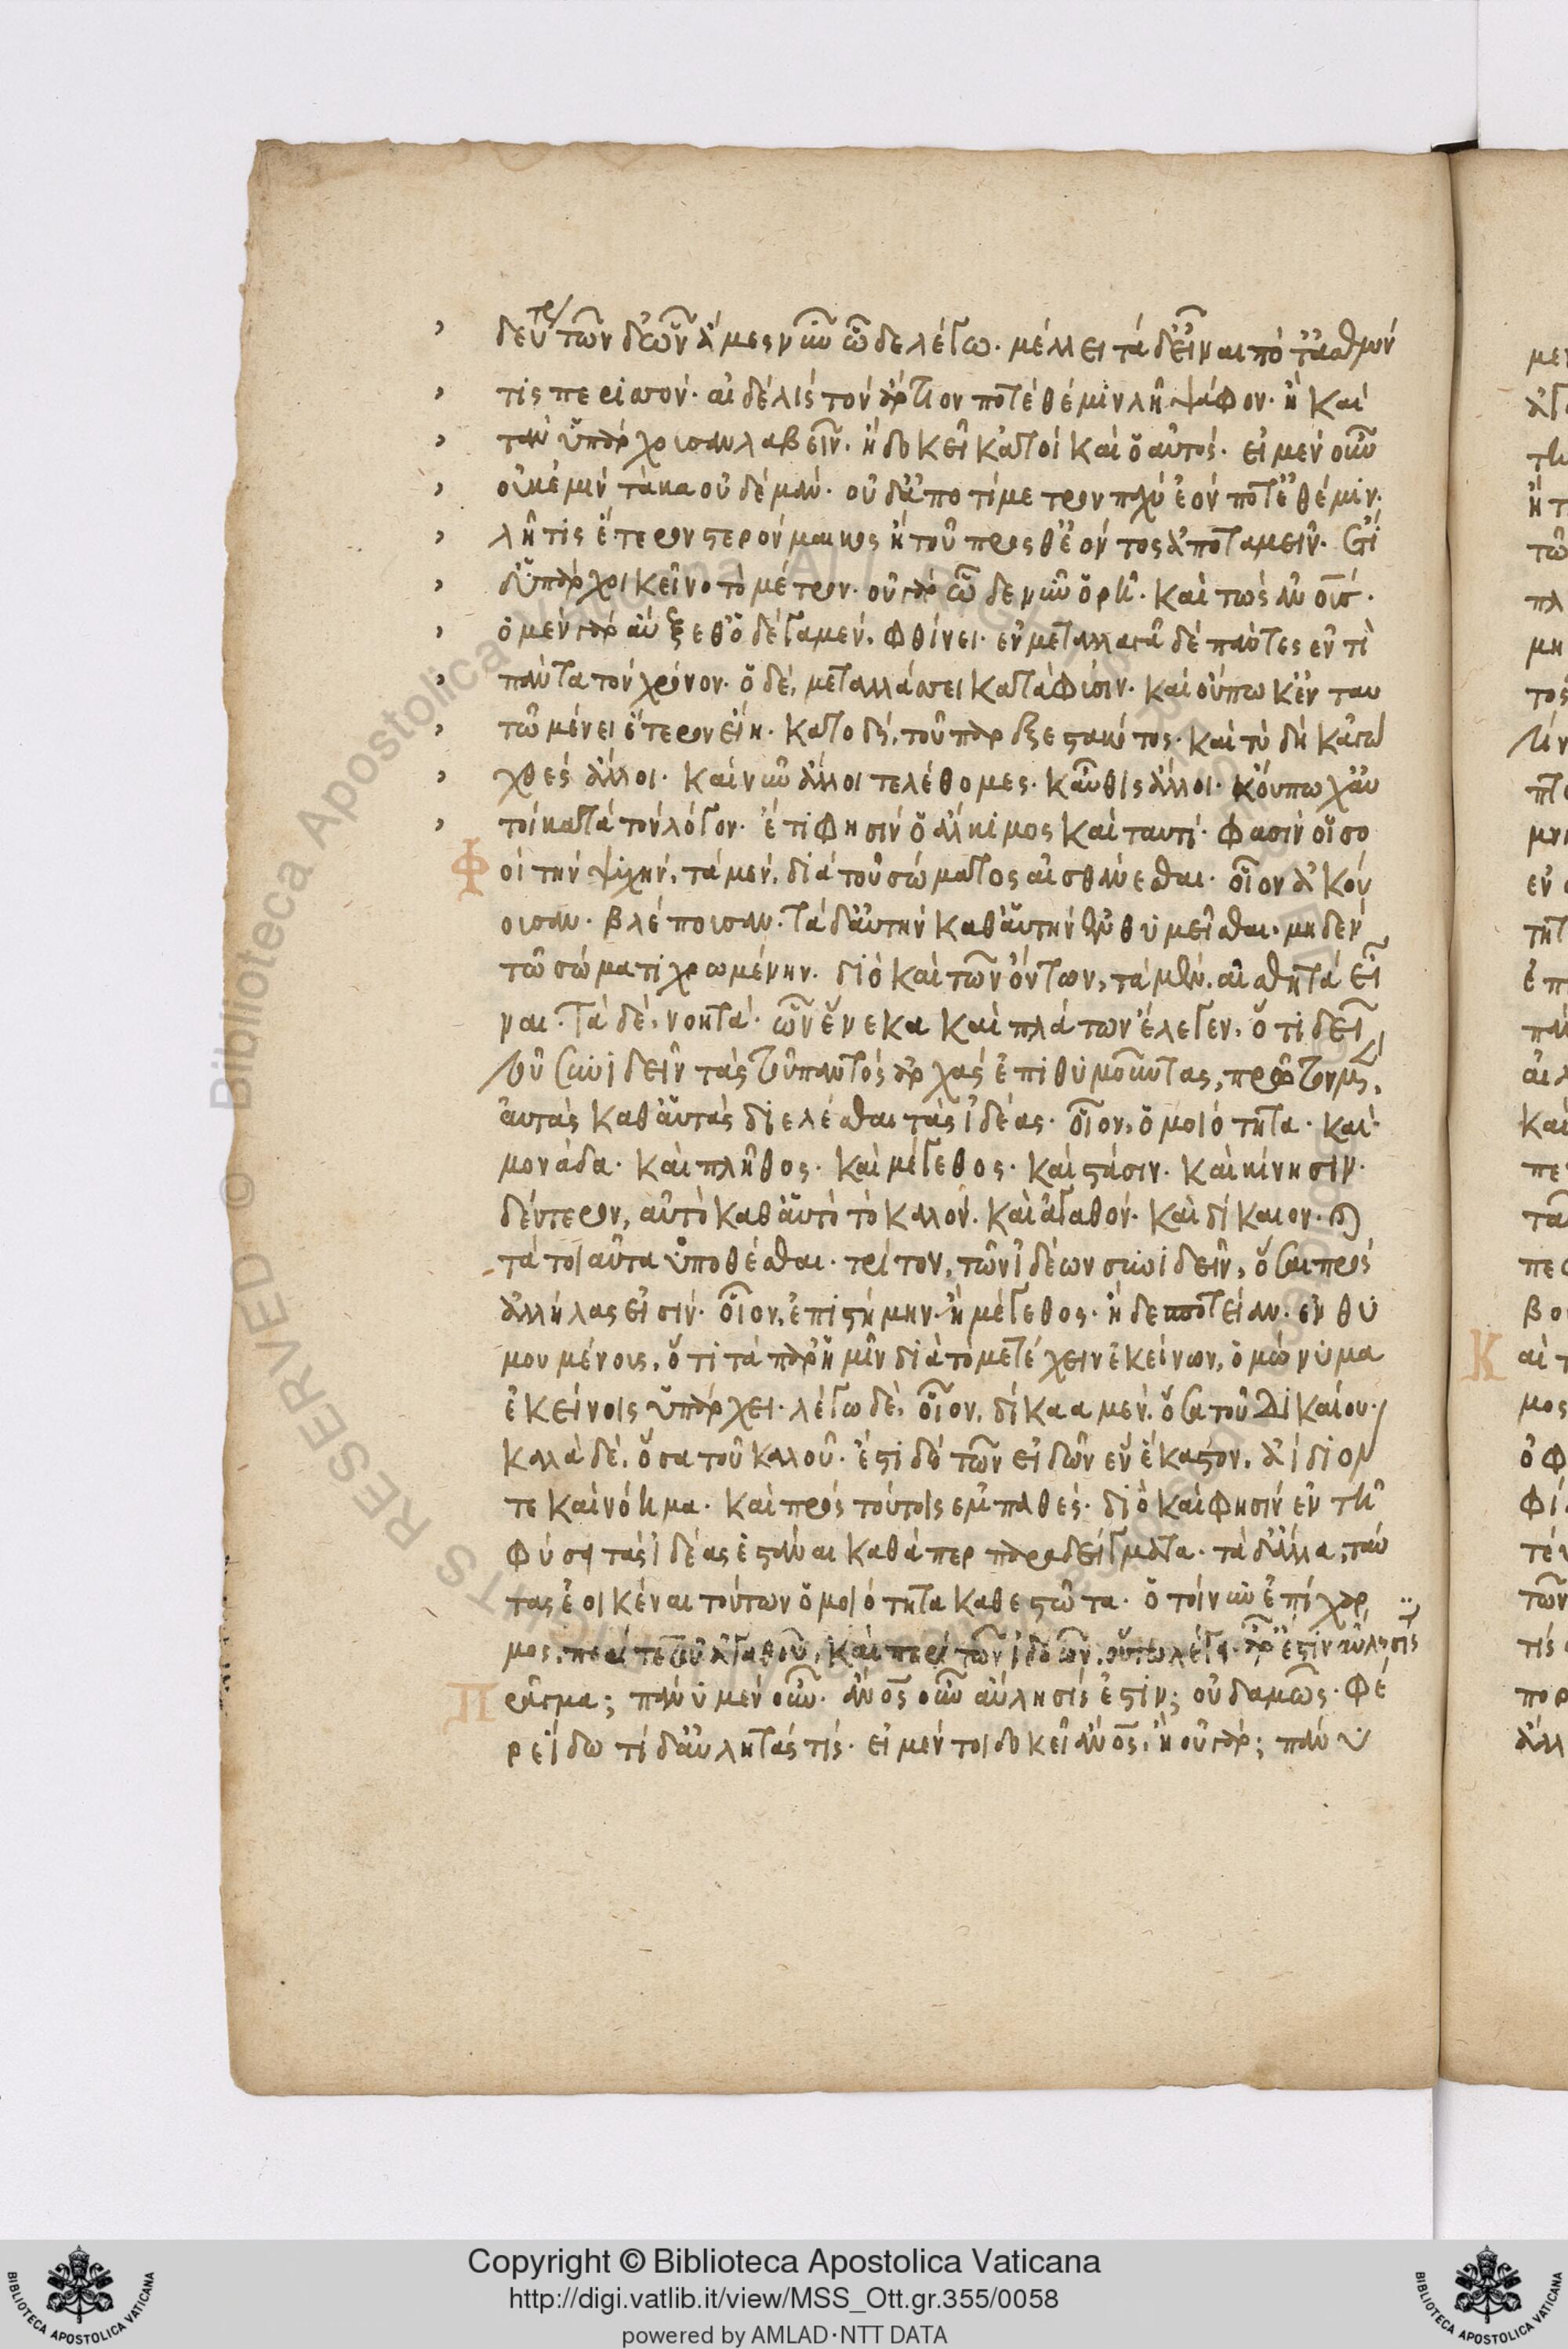 δεύτε των δ' ὧν ἅμες νῦν ὧδε λέγω. μέλλει τὰ δ' εἶναι πὸ τ' ἀριθμόν
τις περισσόν. αἰ δὲ λῇς τὸν ἄρτιον ποτ' ἐθέμιν λῆ ψάφον. ἢ καὶ
τᾶν ὑπαρχουσᾶν λαβεῖν. ἦ δοκεῖ κά τοι καὶ ὁ αὐτός. εἰ μὲν οὖν
λῆ τις ἕτερον στερὸν μᾶκος ἢ τοῦ πρόσθ' ἐόντος ἀποταμεῖν. ἔτι
δ' ὑπάρχοι κεῖνο τὸ μέτρον. οὐ γάρ. ὧδε νῦν ὅρη. καὶ τὼς ἀνους.
ὁ μὲν γὰρ αὔξεθ' ὁ δέ γα μὲν. φθίνει. ἐν μεταλλαγᾶ δὲ πάντες ἐντὶ
πάντα τὸν χρόνον. ὁ δὲ, μεταλλάσσει κατὰ φύσιν. καὶ οὔπω κ' ἐν ταυ
τῶ μένει ἕτερον εἴη. κά το δή, τοῦ παρ εξεστακότος. καὶ τὺ δὴ κἀγὼ
χθὲς ἄλλοι. καὶ νῦν ἄλλοι τελέθομες. καὖθις ἄλλοι. κόυπω χ' ἁυ
τοὶ κατὰ τὸν λόγον. ἔτι φησὶν ὁ ἄλκιμος καὶ ταυτί. φασὶν οἱ σο
οὶ τὴν ψυχήν, τὰ μὲν, διὰ τοῦ σώματος αἰσθάνεσθαι. οἷον ἀκού
ουσαν. βλέπουσαν. τὰ δ' αὐτὴν καθ' αὑτὴν ἐνθυμεῖσθαι. μηδὲν
τῶ σώματι χρωμένην. διὸ καὶ τῶν ὄντων, τὰ μὲν, αἰσθητὰ εἶ
ναι. τὰ δὲ, νοητά. ὧν ἕνεκα καὶ πλάτων ἔλεγεν, ὅτι δεῖ
τοῦ συνιδεῖν τὰς τοῦ παντὸς ἀρχὰς ἐπιθυμοῦντας, πρῶτον μὲν,
αὐτὰς καθ' αὑτὰς διελέσθαι τὰς ἰδέας. οἷον, ὁμοιότητα. καὶ
μονάδα. καὶ πλῆθος. καὶ μέγεθος. καὶ στάσιν. καὶ κίνησιν.
δεύτερον, αὐτὸ καθ' αὑτὸ τὸ καλὸν. καὶ ἀγαθὸν. καὶ δίκαιον. καὶ
τὰ τοιαῦτα ὑποθέσθαι. τρίτον, τῶν ἰδεῶν συνιδεῖν, ὅσαι πρὸς
ἀλλήλας εἰσίν. οἷον, ἐπιστήμην. ἢ μέγεθος. ἢ δεσποτείαν. ἐνθυ
μουμένους, ὅτι τὰ παρ' ἡμῖν διὰ τὸ μετέχειν ἐκείνων, ὁμώνυμα
ἐκείνοις ὑπάρχει. λέγω δὲ, οἷον, δίκαια μὲν, ὅσα τοῦ δικαίου.
καλὰ δὲ, ὅσα τοῦ καλοῦ. ἔστι δὲ τῶν εἰδῶν ἓν ἕκαστον, ἀίδιον
τε καὶ νόημα. καὶ πρὸς τούτοις ἐμπαθές. διὸ καὶ φησὶν ἐν τῆ
φύσει τὰς ἰδέας ἑστάναι καθάπερ παραδείγματα. τὰ δ' ἄλλα, ταύ
τας ἐοικέναι τούτων ὁμοιότητα καθεστῶτα. ὁ τοίνυν ἐπίχαρ
μος, περί τε τοῦ ἀγαθοῦ, καὶ περὶ τῶν ἰδεῶν, οὕτω λέγει. ἆρ' ἔστιν αὔλησίς τι
πρᾶγμα; πάνυ μὲν οὖν. ἄνος οὖν αὔλησίς ἐστιν; οὐδαμῶς. φέ
ρ' εἴδω τί δ' αὐλητάς τίς. εἶμέν τοι δοκεῖ ἄνος, ἢ οὐ γάρ; πάνυ